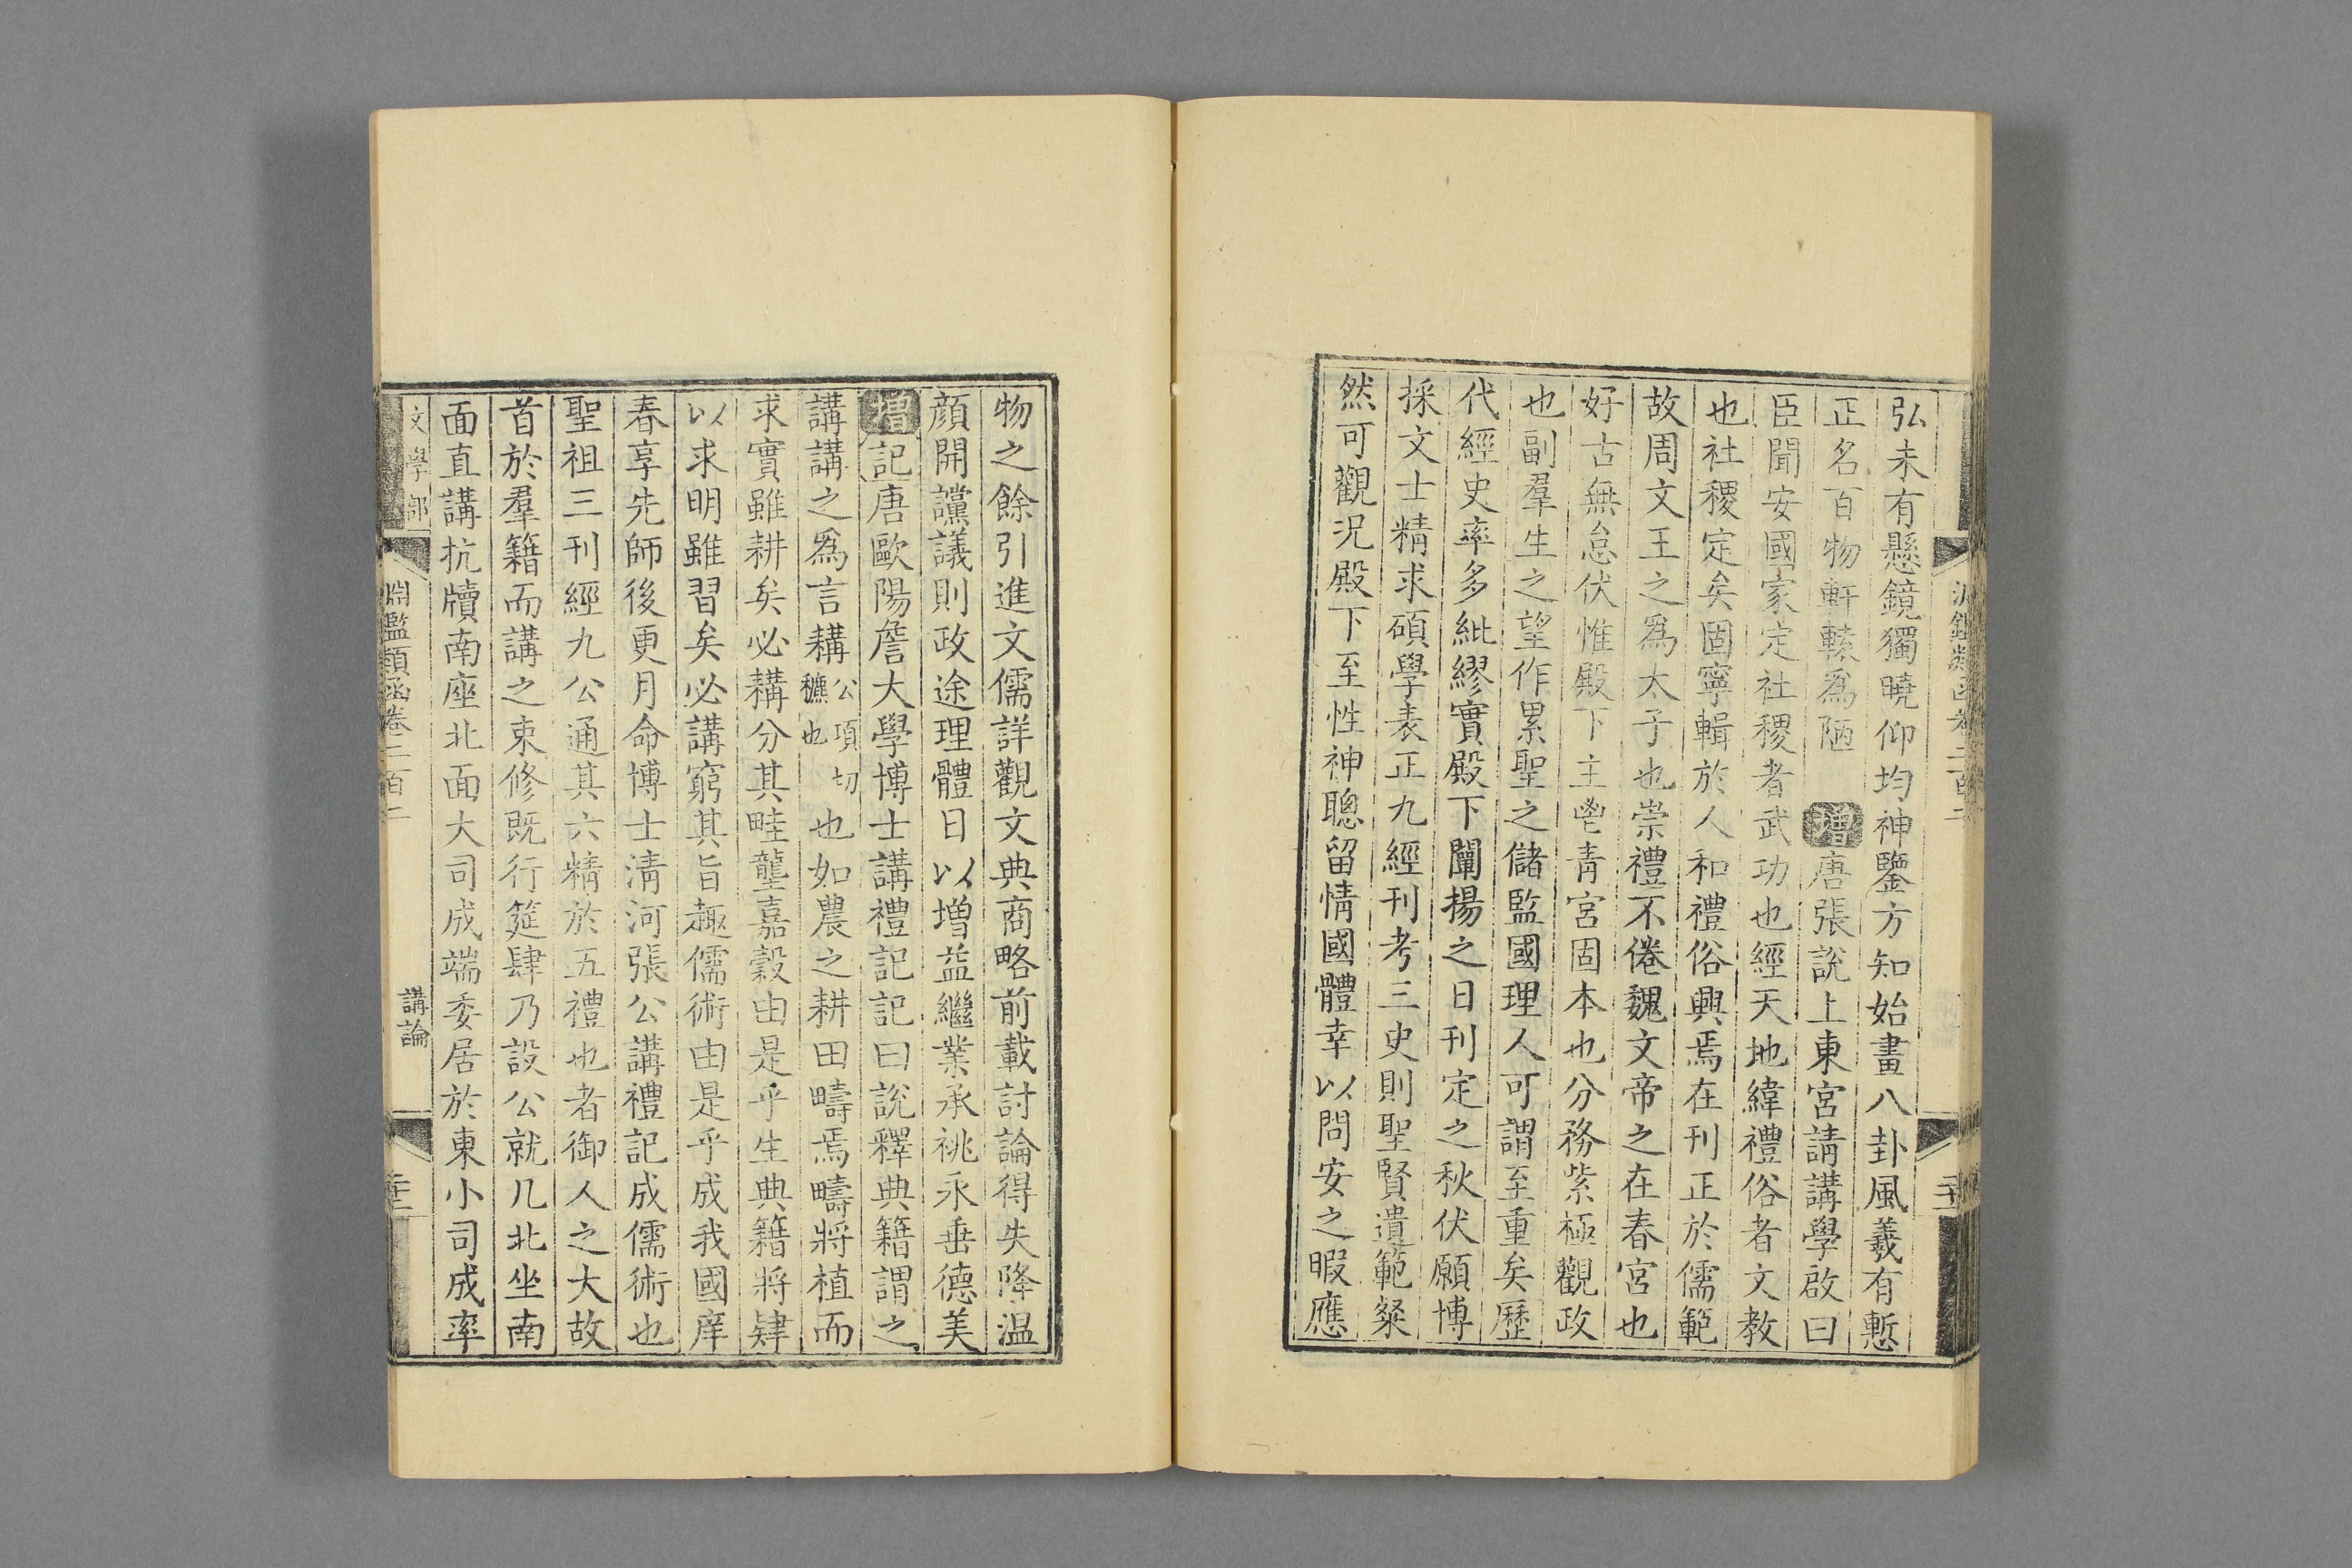 弘未有懸鏡獨曉仰均神鑒方知始畫八卦風羲有慙
正名百物軒轅爲陋　增唐張說上東宮請講學啟曰
臣聞安國家定社稷者武功也經天地緯禮俗者文教
也社稷定矣固寧輯於人和禮俗興焉在刊正於儒範
故周文王之爲太子也崇禮不倦魏文帝之在春宮也
好古無怠伏惟殿下主鬯青宮固本也分務紫極觀政
也副羣生之望作累聖之儲監國理人可謂至重矣歷
代經史率多紕繆實殿下闡揚之日刊定之秋伏願博
採文士精求碩學表正九經刊考三史則聖賢遺範粲
然可觀況殿下至性神聰留情國體幸以問安之暇應
物之餘引進文儒詳觀文典商略前載討論得失降温
顏開讜議則政途理體日以增益繼業承祧永垂德美
增記唐歐陽詹大學博士講禮記記曰說釋典籍謂之
講講之爲言耩公項切穮也也如農之耕田疇焉疇將植而
求實雖耕矣必耩分其畦壟嘉穀由是乎生典籍將肄
以求明雖習矣必講窮其旨趣儒術由是乎成我國庠
春享先師後更月命博士清河張公講禮記成儒術也
聖祖三刊經九公通其六精於五禮也者御人之大故
首於羣籍而講之束修既行筵肆乃設公就几北坐南
面直講抗牘南座北面大司成端委居於東小司成率
文學部
淵鑑類函卷二百二
講論